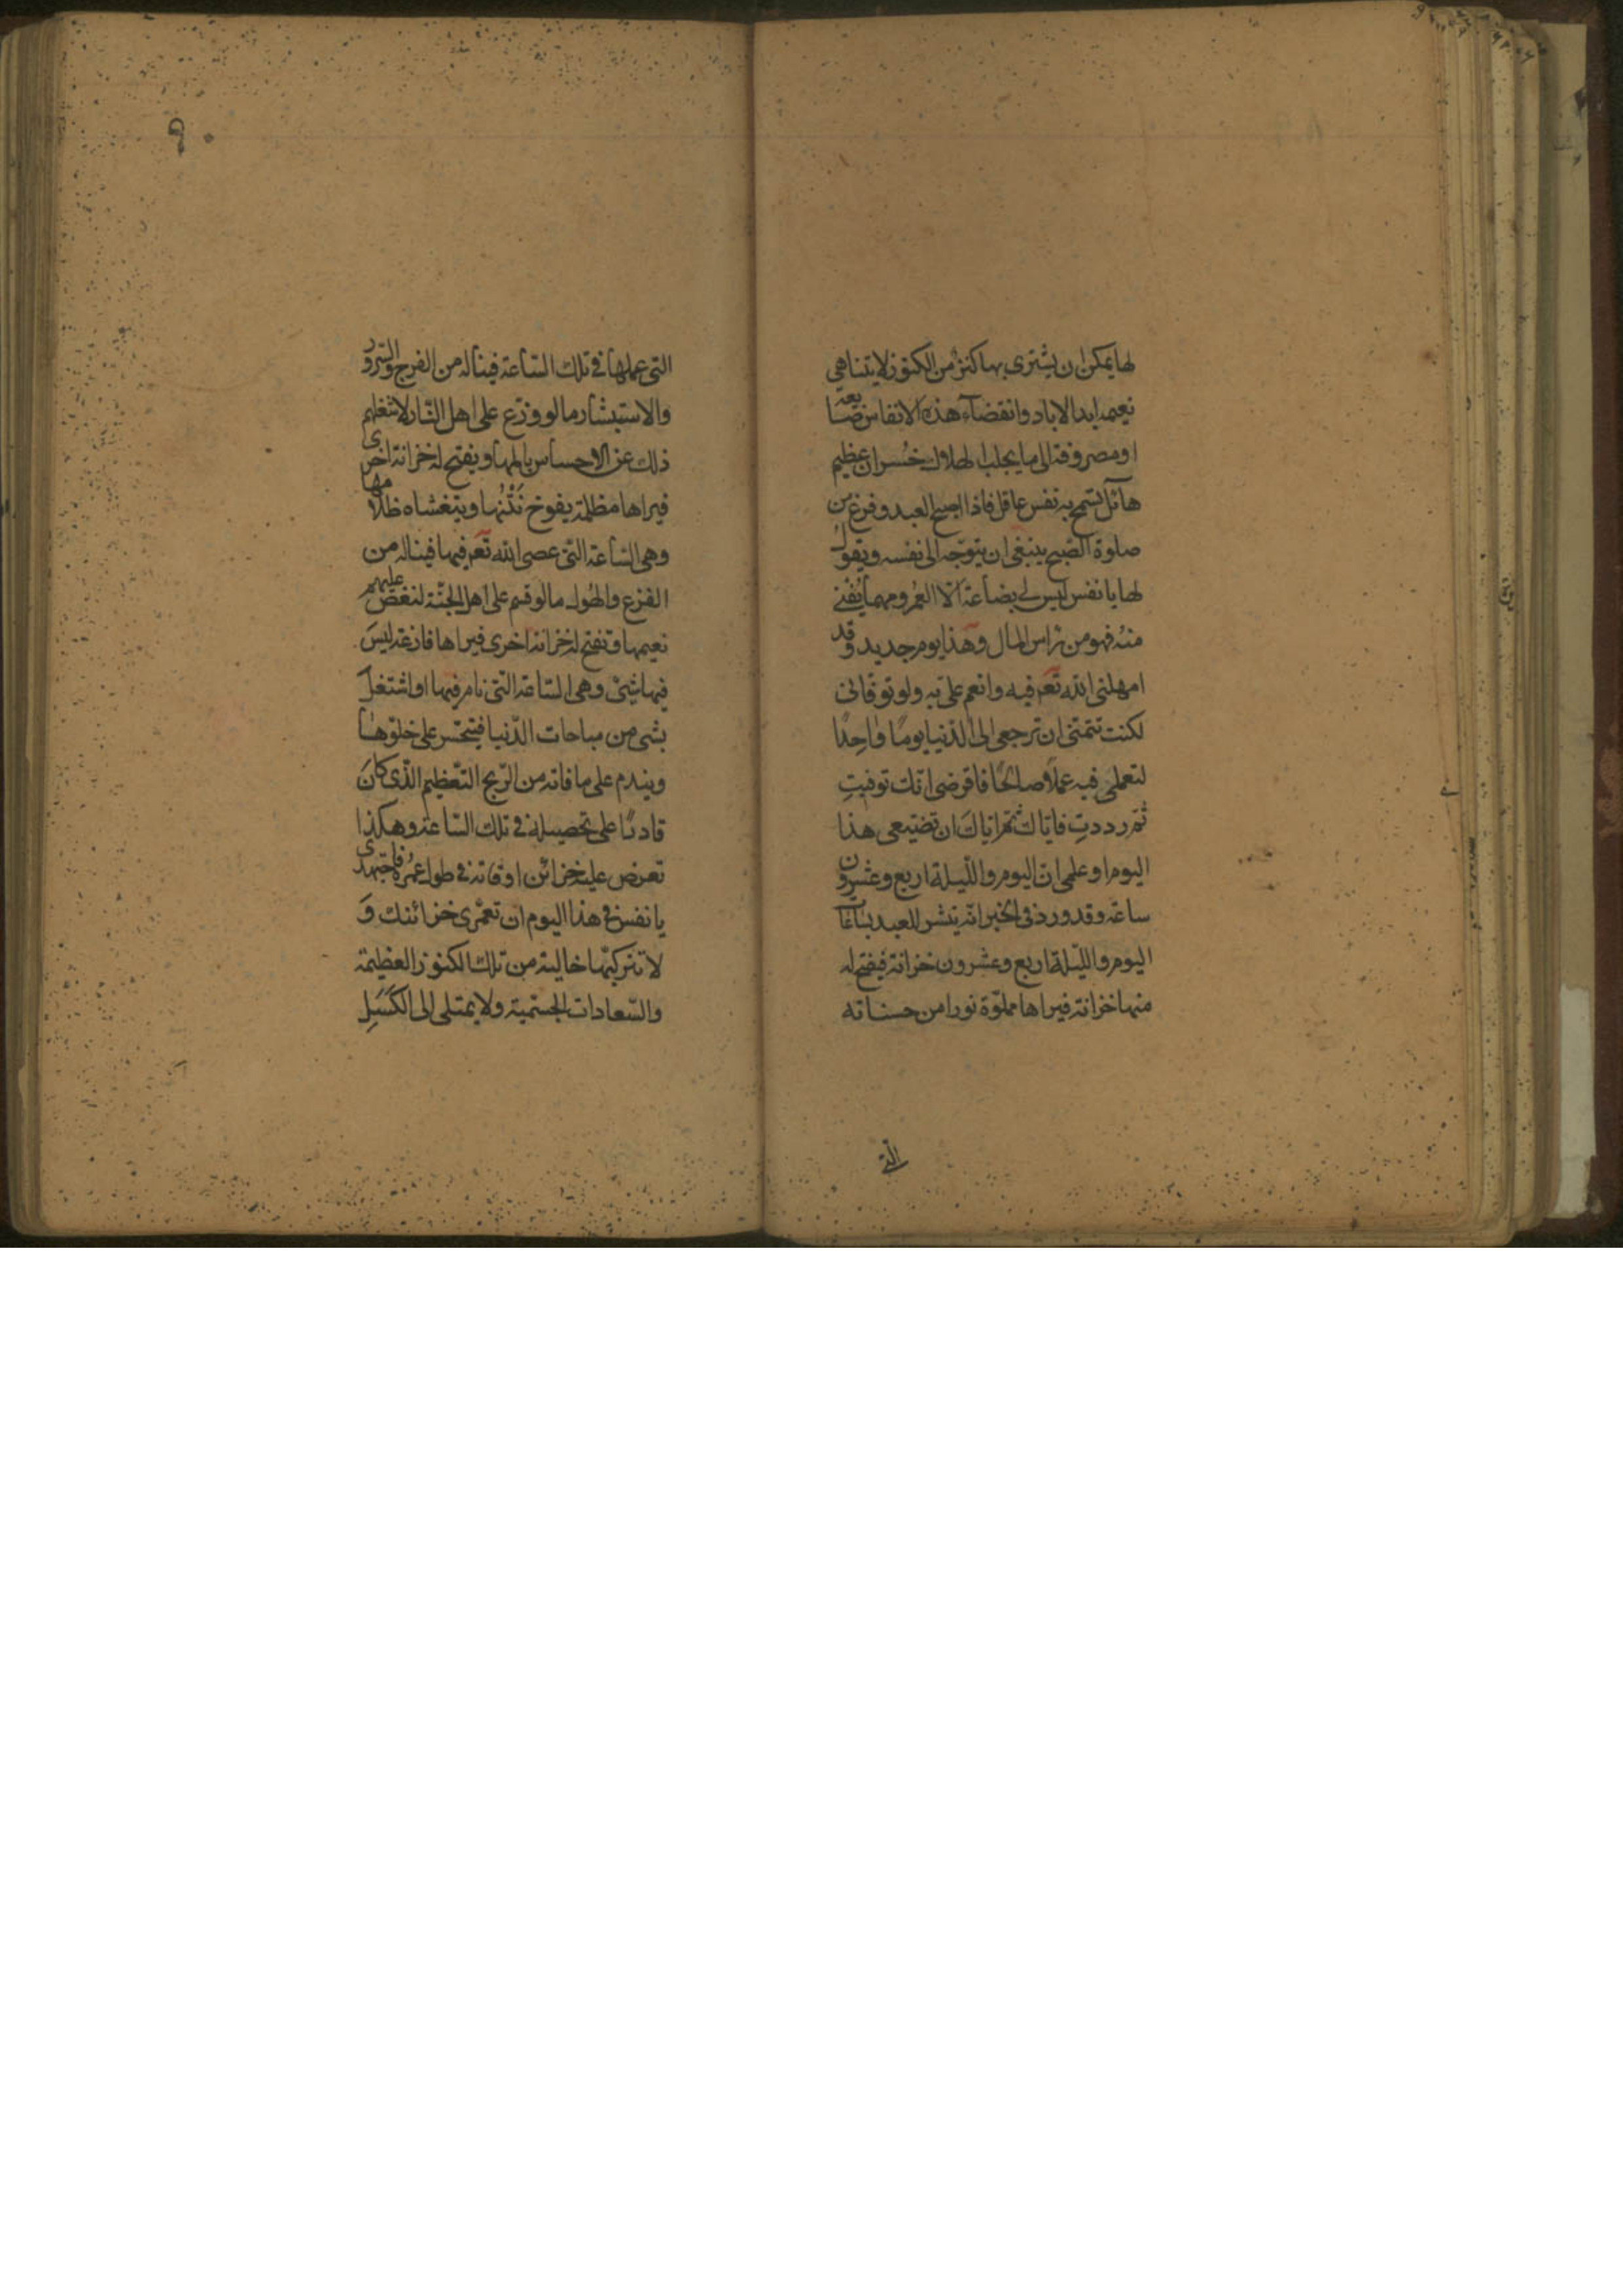 لها يمكن ان يشترى بها كنز من الكنوز لا يتناهى
نعيمه ابد الاباد وانقضاء هذه الانفاس ضايعة
او مصروفة الى ما يجلب الهلاك خسران عظيم
هائل لا تسمح به نفس عاقل فاذا اصبح العبد وفرغ من
صلوة الصبح ينبغى ان يتوجه الى نفسه ويقول
لها يا نفس ليس لى بضاعة الا العمر ومهما يفنى
منه فهو من راس المال وهذا يوم جديد وقد
امهلنى الله تع فيه وانعم على به ولو توفانى
لكنت تتمنى ان ترجعى الى الدنيا يوما واحدا
لتعملى فيه عملا صالحا فافرضى انك توفيت
ثم رددت فاياك ثم اياك ان تضيعى هذا
اليوم اوعلمى ان اليوم والليلة اربع وعشرون
ساعة وقد ورد فى الخبر انه ينشر للعبد بساعات
اليوم والليلة اربع وعشرون خزانة فيفتح له
منها خزانة فيراها مملوة نورا من حسناته
التى
٩٠
التى عملها فى تلك الساعة فيناله من الفرح والسرور
والاستبشار ما لو وزع على اهل النار لاشغلهم
ذلك عن الاحساس بالمها ويفتح له خزانة اخرى
فيراها مظلمة يفوح نتنها ويتغشاه ظلامها
وهى الساعة التى عصى الله تع فيها فيناله من
الفزع والهول ما لو قسم على اهل الجنة لنغص عليهم
نعيمها وتفتح له خزانة اخرى فيراها فارغة ليس
فيها شئ وهى الساعة التى نام فيها او اشتغل
بشى من مباحات الدنيا فيتحسر على خلوها
ويندم على ما فاته من الربح العظيم الذى كان
قادرا على تحصيله فى تلك الساعة وهكذا
تعرض عليه خزائن اوقاته فى طول عمره فاجتهدى
يا نفس فى هذا اليوم ان تعمرى خزائنك و
لا تتركيها خالية من تلك الكنوز العظيمة
والسعادات الجسمية ولا يمتلى الى الكسل